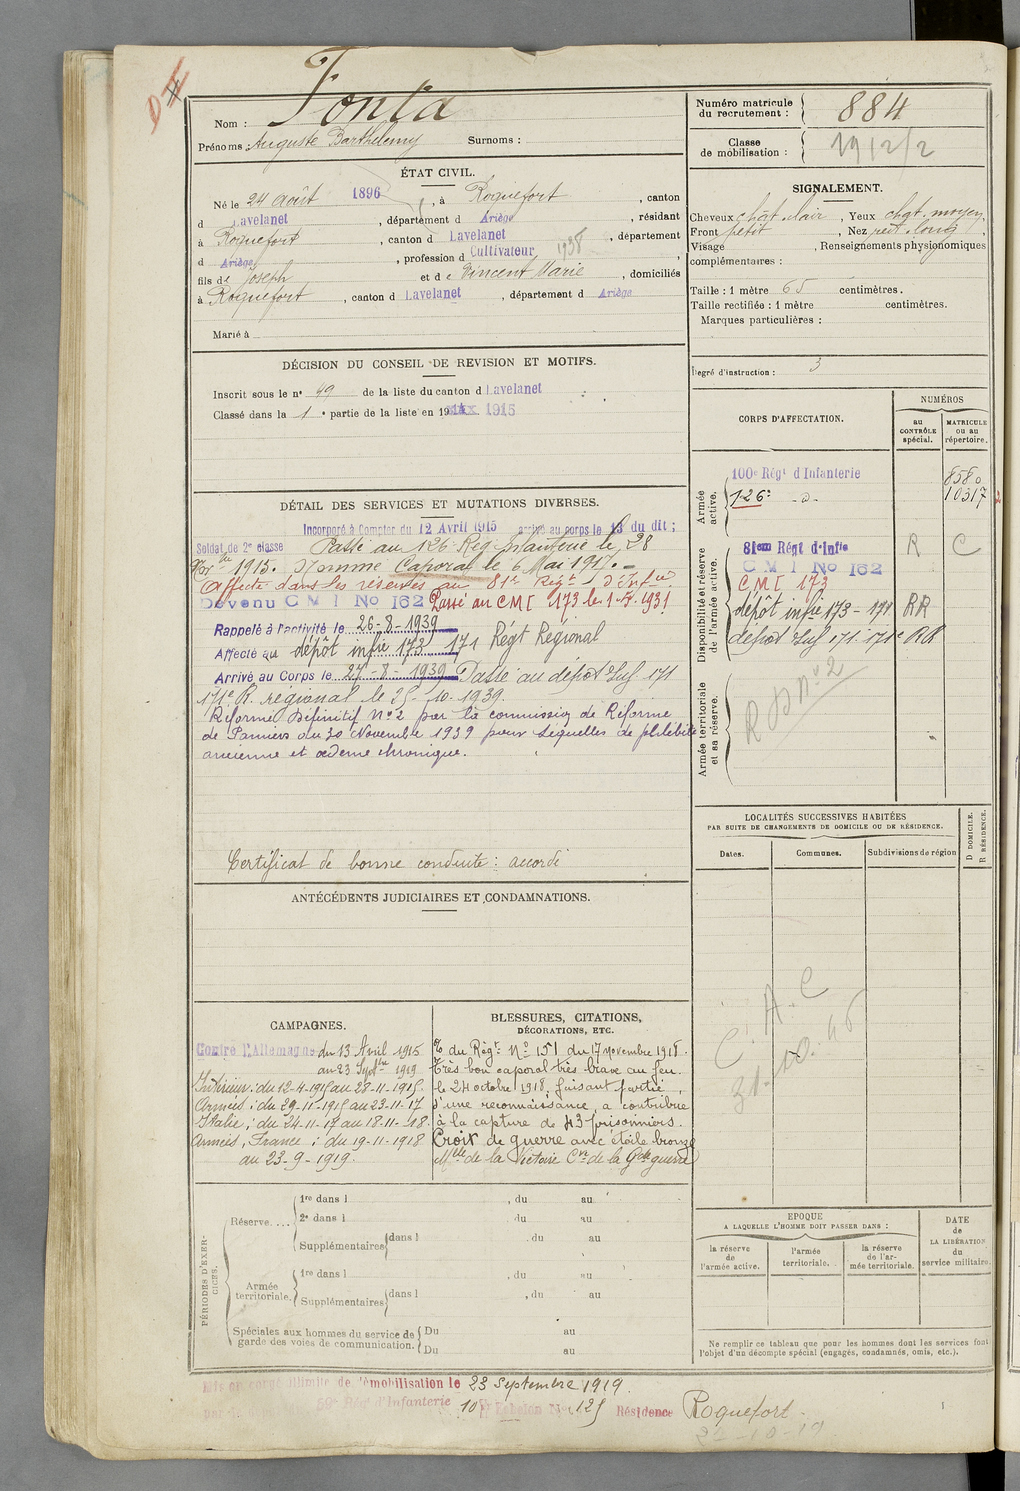 D II
Nom : Fonta
Prénoms : Auguste Barthélemy Surnoms :
Numéro matricule du recrutement : 884
Classe de mobilisation : 1912/2
ÉTAT CIVIL.
Né le 24 août 1896, à Roquefort, canton
d Lavelanet, département d Ariège, résidant
à Roquefort, canton d Lavelanet, département
d Ariège, profession d Cultivateur 1938
fils de Joseph et de Vincent Marie, domiciliés
à Roquefort, canton d Lavelanet, département d Ariège
Marié à
SIGNALEMENT.
Cheveux chât. clair, Yeux chat. moyen,
Front petit, Nez rect. long,
Visage , Renseignements physionomiques
complémentaires :
Taille : 1 mètre 65 centimètres.
Taille rectifiée : 1 mètre centimètres.
Marques particulières :
Degré d'instruction : 3
DÉCISION DU CONSEIL DE REVISION ET MOTIFS.
Inscrit sous le n° 49 de la liste du canton d Lavelanet
Classé dans la 1e partie de la liste en 19 1915
DÉTAIL DES SERVICES ET MUTATIONS DIVERSES.
Incorporé à Compter du 12 Avril 1915 arrivé au corps le 13 du dit ;
Soldat de 2e classe Passé au 126e Rég. d'Infanterie le 28
Nov.bre 1915. Nommé Caporal le 6 Mai 1917.
Affecté dans les réserves au 81e Régt d'Inf.ie
Devenu C M I No 162 Passé au CM I 173 le 1-5-1931
Rappelé à l'activité le 26-8-1939
Affecté au dépôt infie 173 171 Régt Régional
Arrivé au Corps le 27-8-1939 Passé au dépôt Inf 171
171e R. régional le 25-10-1939
Réformé Définitif No 2 par la commission de Réforme
de Pamiers du 30 Novembre 1939 pour séquelles de phlébite
ancienne et œdème chronique.
Certificat de bonne conduite : accordé
CORPS D'AFFECTATION.
NUMÉROS
au CONTRÔLE spécial.
MATRICULE ou au répertoire.
Armée active.
100e Régt d'Infanterie 8580
126e -d- 10317
Disponibilité et réserve de l'armée active.
81em Régt d'Infie R C
C M I No 162
CM I 173
dépôt infie 173-171 RR
dépôt Inf 171-171e RR
Armée territoriale et sa réserve.
R D n° 2
LOCALITÉS SUCCESSIVES HABITÉES
PAR SUITE DE CHANGEMENTS DE DOMICILE OU DE RÉSIDENCE.
Dates.
Communes.
Subdivisions de région
D DOMICILE.
R RÉSIDENCE.
C. A. C
31.10.46
ANTÉCÉDENTS JUDICIAIRES ET CONDAMNATIONS.
CAMPAGNES.
Contre l'Allemagne du 13 Avril 1915
au 23 Sept.bre 1919
Intérieur : du 12-4-1915 au 28-11-1915.
Armées : du 29-11-1915 au 23-11-17
Italie : du 24-11-17 au 18-11-18.
Armées, France : du 19-11-1918
au 23-9-1919.
BLESSURES, CITATIONS,
DÉCORATIONS, ETC.
O/ du Régt No 151 du 17 novembre 1918.
Très bon caporal très brave au feu.
le 24 octobre 1918, faisant partie
d'une reconnaissance, a contribué
à la capture de 43 prisonniers.
Croix de guerre avec étoile bronze
Mlle de la Victoire Cve de la Gde guerre
PÉRIODES D'EXERCICES.
Réserve....
1re dans l , du au
2e dans l du au
Supplémentaires dans l , du au
Armée territoriale.
1re dans l , du au
Supplémentaires dans l , du au
Spéciales aux hommes du service de garde des voies de communication.
Du au
Du au
EPOQUE
A LAQUELLE L'HOMME DOIT PASSER DANS :
la réserve de l'armée active.
l'armée territoriale.
la réserve de l'armée territoriale.
DATE
de
LA LIBÉRATION
du
service militaire.
Ne remplir ce tableau que pour les hommes dont les services font
l'objet d'un décompte spécial (engagés, condamnés, omis, etc.).
Mis en congé illimité de démobilisation le 23 septembre 1919.
par 59e Régt d'Infanterie 10e Echelon No 125 Résidence Roquefort